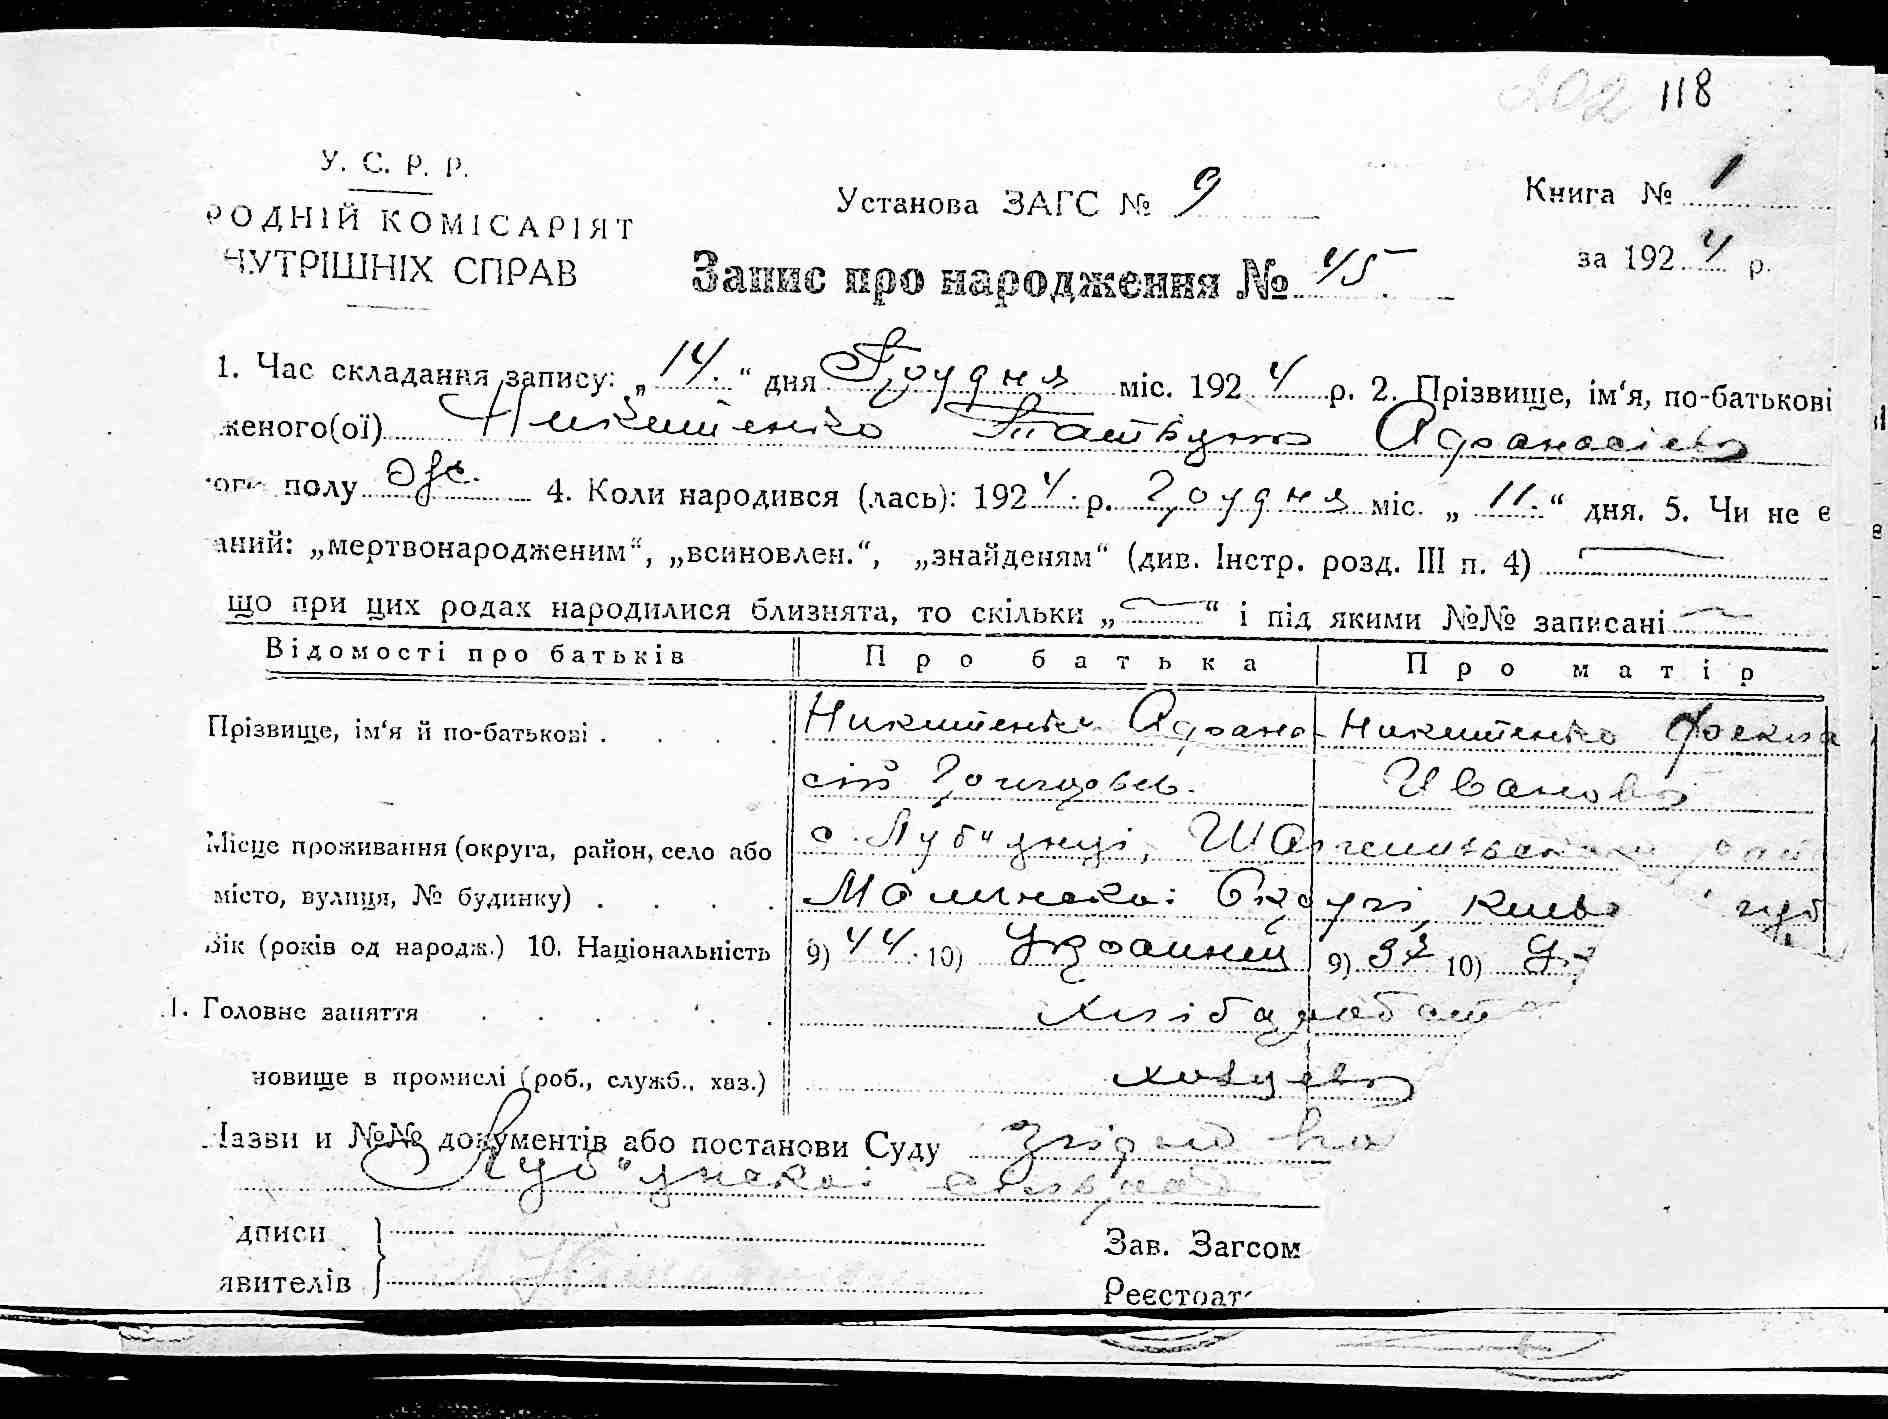 202 118
У. С. Р. Р.
Установа ЗАГС № 9
Книга № 1
РОДНІЙ КОМІСАРІЯТ
НУТРІШНІХ СПРАВ
за 1924 р.
Запис про народження № 45.
1. Час складання запису: „14.“ дня Грудня міс. 1924 р. 2. Прізвище, ім‘я, по-батькові
женого(ої) Никитенко Афанасієв
ого полу ж. 4. Коли народився (лась): 1924 р. Грудня міс. „11.“ дня. 5. Чи не є
аний: „мертвонародженим“, „всиновлен.“, „знайденям“ (див. Інстр. розд. III п. 4)
що при цих родах народилися близнята, то скільки „—“ і під якими №№ записані —
Відомості про батьків Про батька Про матір
Прізвище, ім‘я й по-батькові . . . . Никитенко Афана- Никитенко Фекла
сій Иванов
Місце проживання (округа, район, село або с.
місто, вулиця, № будинку) . . . . Малинської Округи, Київ губ
Вік (років од народж.) 10. Національність 9) 44. 10) Українец 9) 37 10) У
1. Головне заняття
новище в промислі (роб., служб., хаз.)
Назви и №№ документів або постанови Суду Згідно
дписи
Зав. Загсом
явителів
Реєстрат